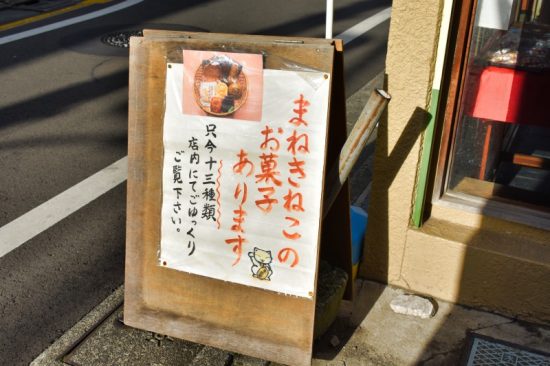 まねきねこの
お菓子
あります
只今十三種類
店内にてごゆっくり
ご覧下さい。